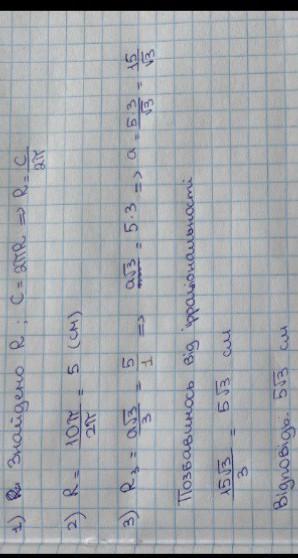 1) Знайдено R; C = 2πR => R = C/2π
2) R = 10π/2π = 5 (см)
3) R₃ = a√3/3 = 5/1 => a√3 = 5·3 => a = 5·3/√3 = 15/√3
Позбавимось від ірраціональності
15√3/3 = 5√3 см
Відповідь: 5√3 см